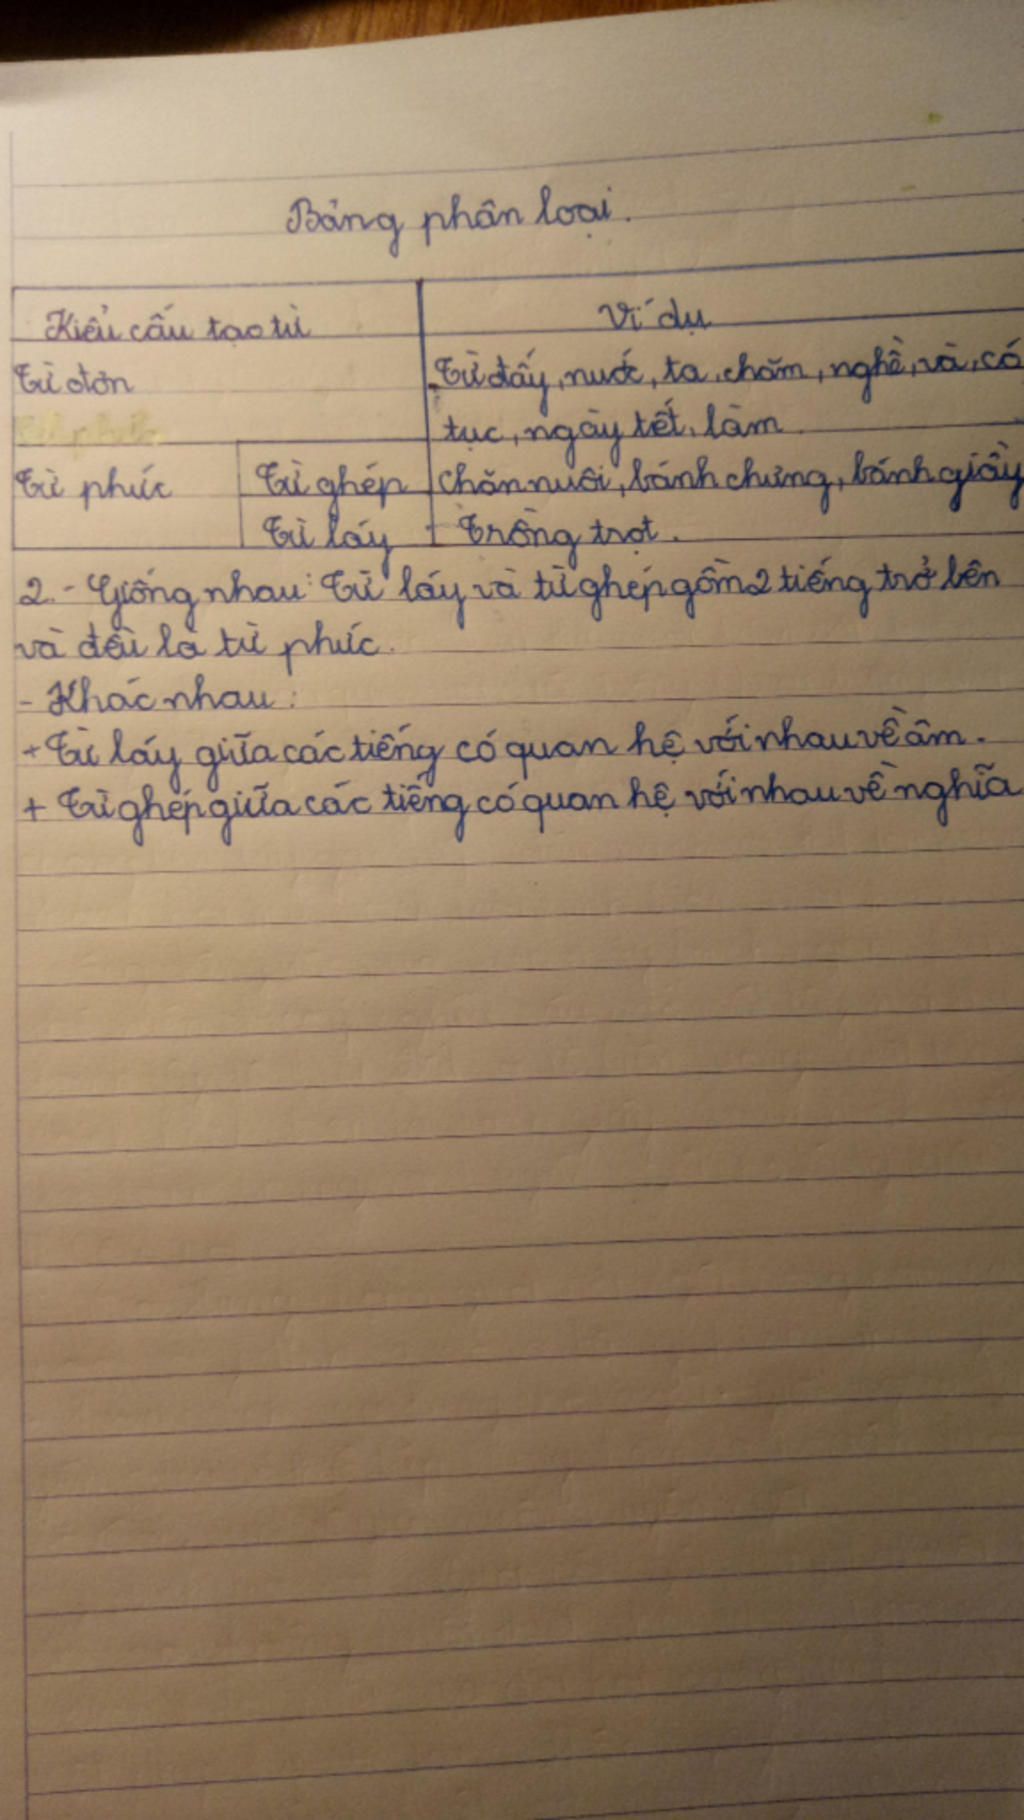 Bảng phân loại.
Kiểu cấu tạo từ Ví dụ
Từ đơn Từ đấy, nước, ta, chăm, nghề, và, có
tục, ngày tết, làm.
Từ phức Từ ghép chăn nuôi, bánh chưng, bánh giầy
Từ láy Trồng trọt.
2. - Giống nhau: Từ láy và từ ghép gồm 2 tiếng trở lên
và đều là từ phức.
- Khác nhau:
+ Từ láy giữa các tiếng có quan hệ với nhau về âm.
+ Từ ghép giữa các tiếng có quan hệ với nhau về nghĩa